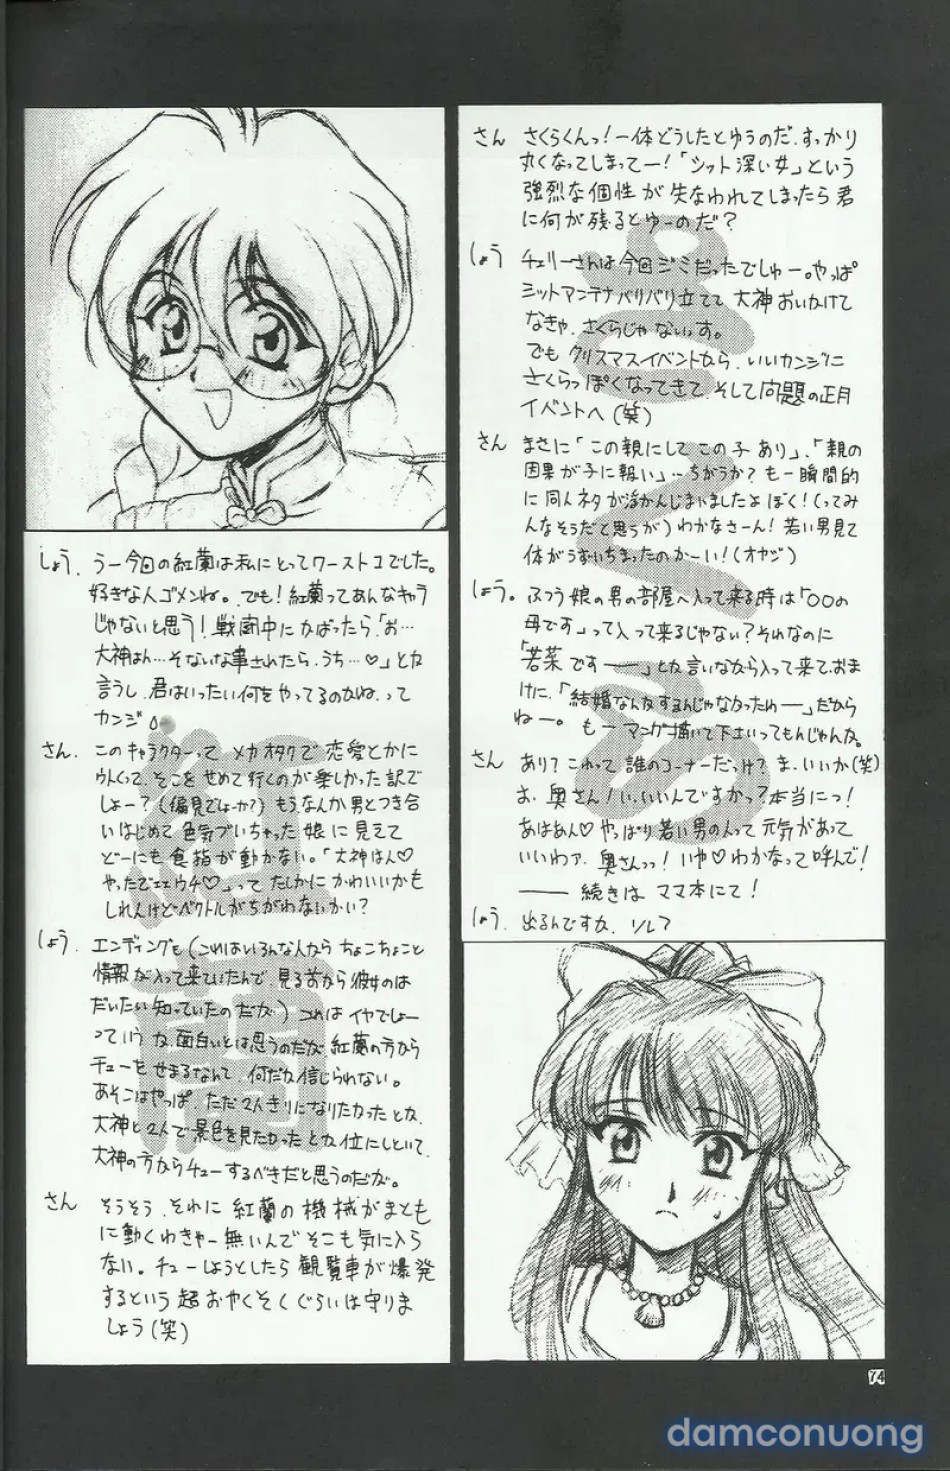 さん さくらくんっ!一体どうしたとゆうのだ、すっかり
丸くなってしまってー!「シット深い女」という
強烈な個性が失なわれてしまったら君
に何が残るとゆーのだ?
しょう チェリーさんは今回ジミだったでしゅー。やっぱ
ミットアンテナバリバリ立てて大神おいかけて
なきゃ、さくらじゃないっす。
でもクリスマスイベントなら、いいカンジに
さくらっぽくなってきて そして問題の正月
イベントへ(笑)
さん まさに「この親にしてこの子あり」、「親の
因果が子に報い」…ちがうか?もー瞬間的
に同人ネタが浮かんじまいましたよぼく!(ってみ
んなそうだと思うが)わかなさーん!若い男見て
体がうずいちまったのかーい!(オヤジ)
しょう。ふつう娘の男の部屋へ入って来る時は「○○の
母です」って入って来るじゃない?それなのに
「若菜ですー」とか言いながら入って来て、おま
けに、「結婚なんかするんじゃなかったわー」だから
ねー。もーマンガ描いて下さいってもんじゃんか。
さん あり?これって誰のコーナーだっけ?ま、いいか(笑)
お、奥さん!い、いいんですかっ?本当にっ!
あはあん♡やっぱり若い男の人って元気があって
いいわァ、奥さんっ!いや♡わかなって呼んで!
―― 続きはママ本にて!
しょう、出るんですか、ソレ?
しょう、うー今回の紅蘭は私にとってワーストコでした。
好きな人ゴメンね。でも!紅蘭ってあんなキャラ
じゃないと思う!戦闘中にかばったら「お…
大神はん…そないな事されたら、うち…♡」とか
言うし、君はいったい何をやってるのかね、って
カンジ
さん、このキャラクターってメカオタクで恋愛とかに
ウトくって、そこをせめて行くのが楽しかった訳で
しょー?(偏見でしょーか?)もうなんか男とつき合
いはじめて色気づいちゃった娘に見えて
どーにも食指が動かない。「大神はん♡
やったでエエウチ♡」って たしかにかわいいかも
しれんけどベクトルがちがわないかい?
しょう エンディングも(これはいろんな人からちょこちょこと
情報が入って来ていたんで、見る前から彼女のは
だいたい知っていたのだが)これはイヤでしょー
っていうか、面白いとは思うのだが紅蘭の方から
チューをせまるなんて、何だか信じられない。
あそこはやっぱ、ただ2人きりになりたかったとか、
大神と2人で景色を見たかったとか位にしといて、
大神の方からチューするべきだと思うのだが。
さん そうそう、それに紅蘭の機械がまとも
に動くわきゃー無いんでそこも気に入ら
ない。チューしようとしたら観覧車が爆発
するという超おやくそくぐらいは守りま
しょう(笑)
紅蘭
74
damconuong